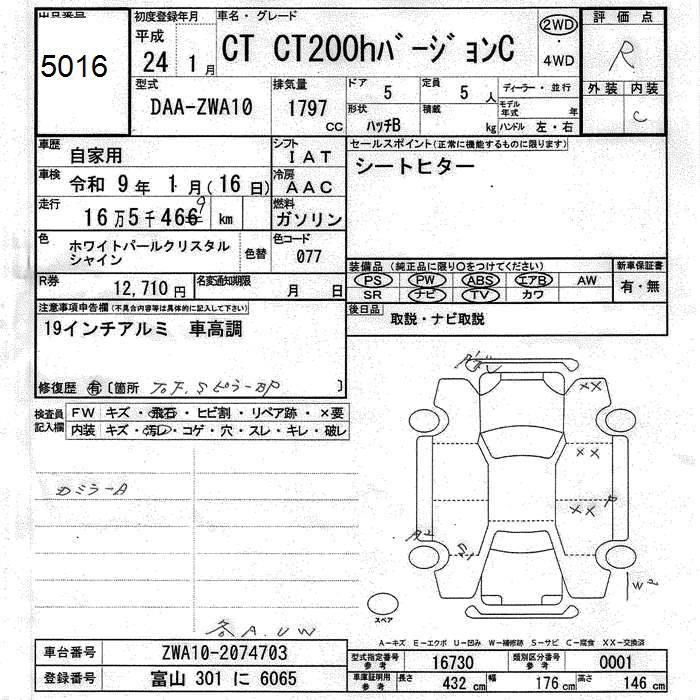 出品番号
5016
初度登録年月
平成
24 1 月
車名・グレード
CT CT200hバージョンC
2WD
・
4WD
評価点
R
外装 内装
C
型式
DAA-ZWA10
排気量
1797 CC
ドア
5
定員
5 人
形状
ハッチB
積載
kg
ディーラー・並行
モデル年式
年
ハンドル 左・右
車歴
自家用
シフト
IAT
車検
令和 9年 1月(16日)
冷房
AAC
走行
16万5千466 9 km
燃料
ガソリン
色
ホワイトパールクリスタルシャイン
色替
色コード
077
R券
12,710円
名変通知期限
月 日
セールスポイント(正常に機能するものに限ります)
シートヒター
装備品(純正品に限り〇をつけてください)
新車保証書
PS PW ABS エアB AW
SR ナビ TV カワ
有・無
後日品
取説・ナビ取説
注意事項申告欄(不具合内容等は具体的に記入して下さい)
19インチアルミ 車高調
修復歴 有 〔箇所 〕
検査員記入欄
FW キズ・飛石・ヒビ割・リペア跡・×要
内装 キズ・汚レ・コゲ・穴・スレ・キレ・破レ
カミラーA
各A.UW
XX
XX
XX P
S1
スペア
A-キズ E-エクボ U-凹み W-補修跡 S-サビ C-腐食 XX-交換済
車台番号
ZWA10-2074703
登録番号
富山 301 に 6065
型式指定番号
参考
16730
類別区分番号
参考
0001
車庫証明用
参考
長さ 432 cm
幅 176 cm
高さ 146 cm